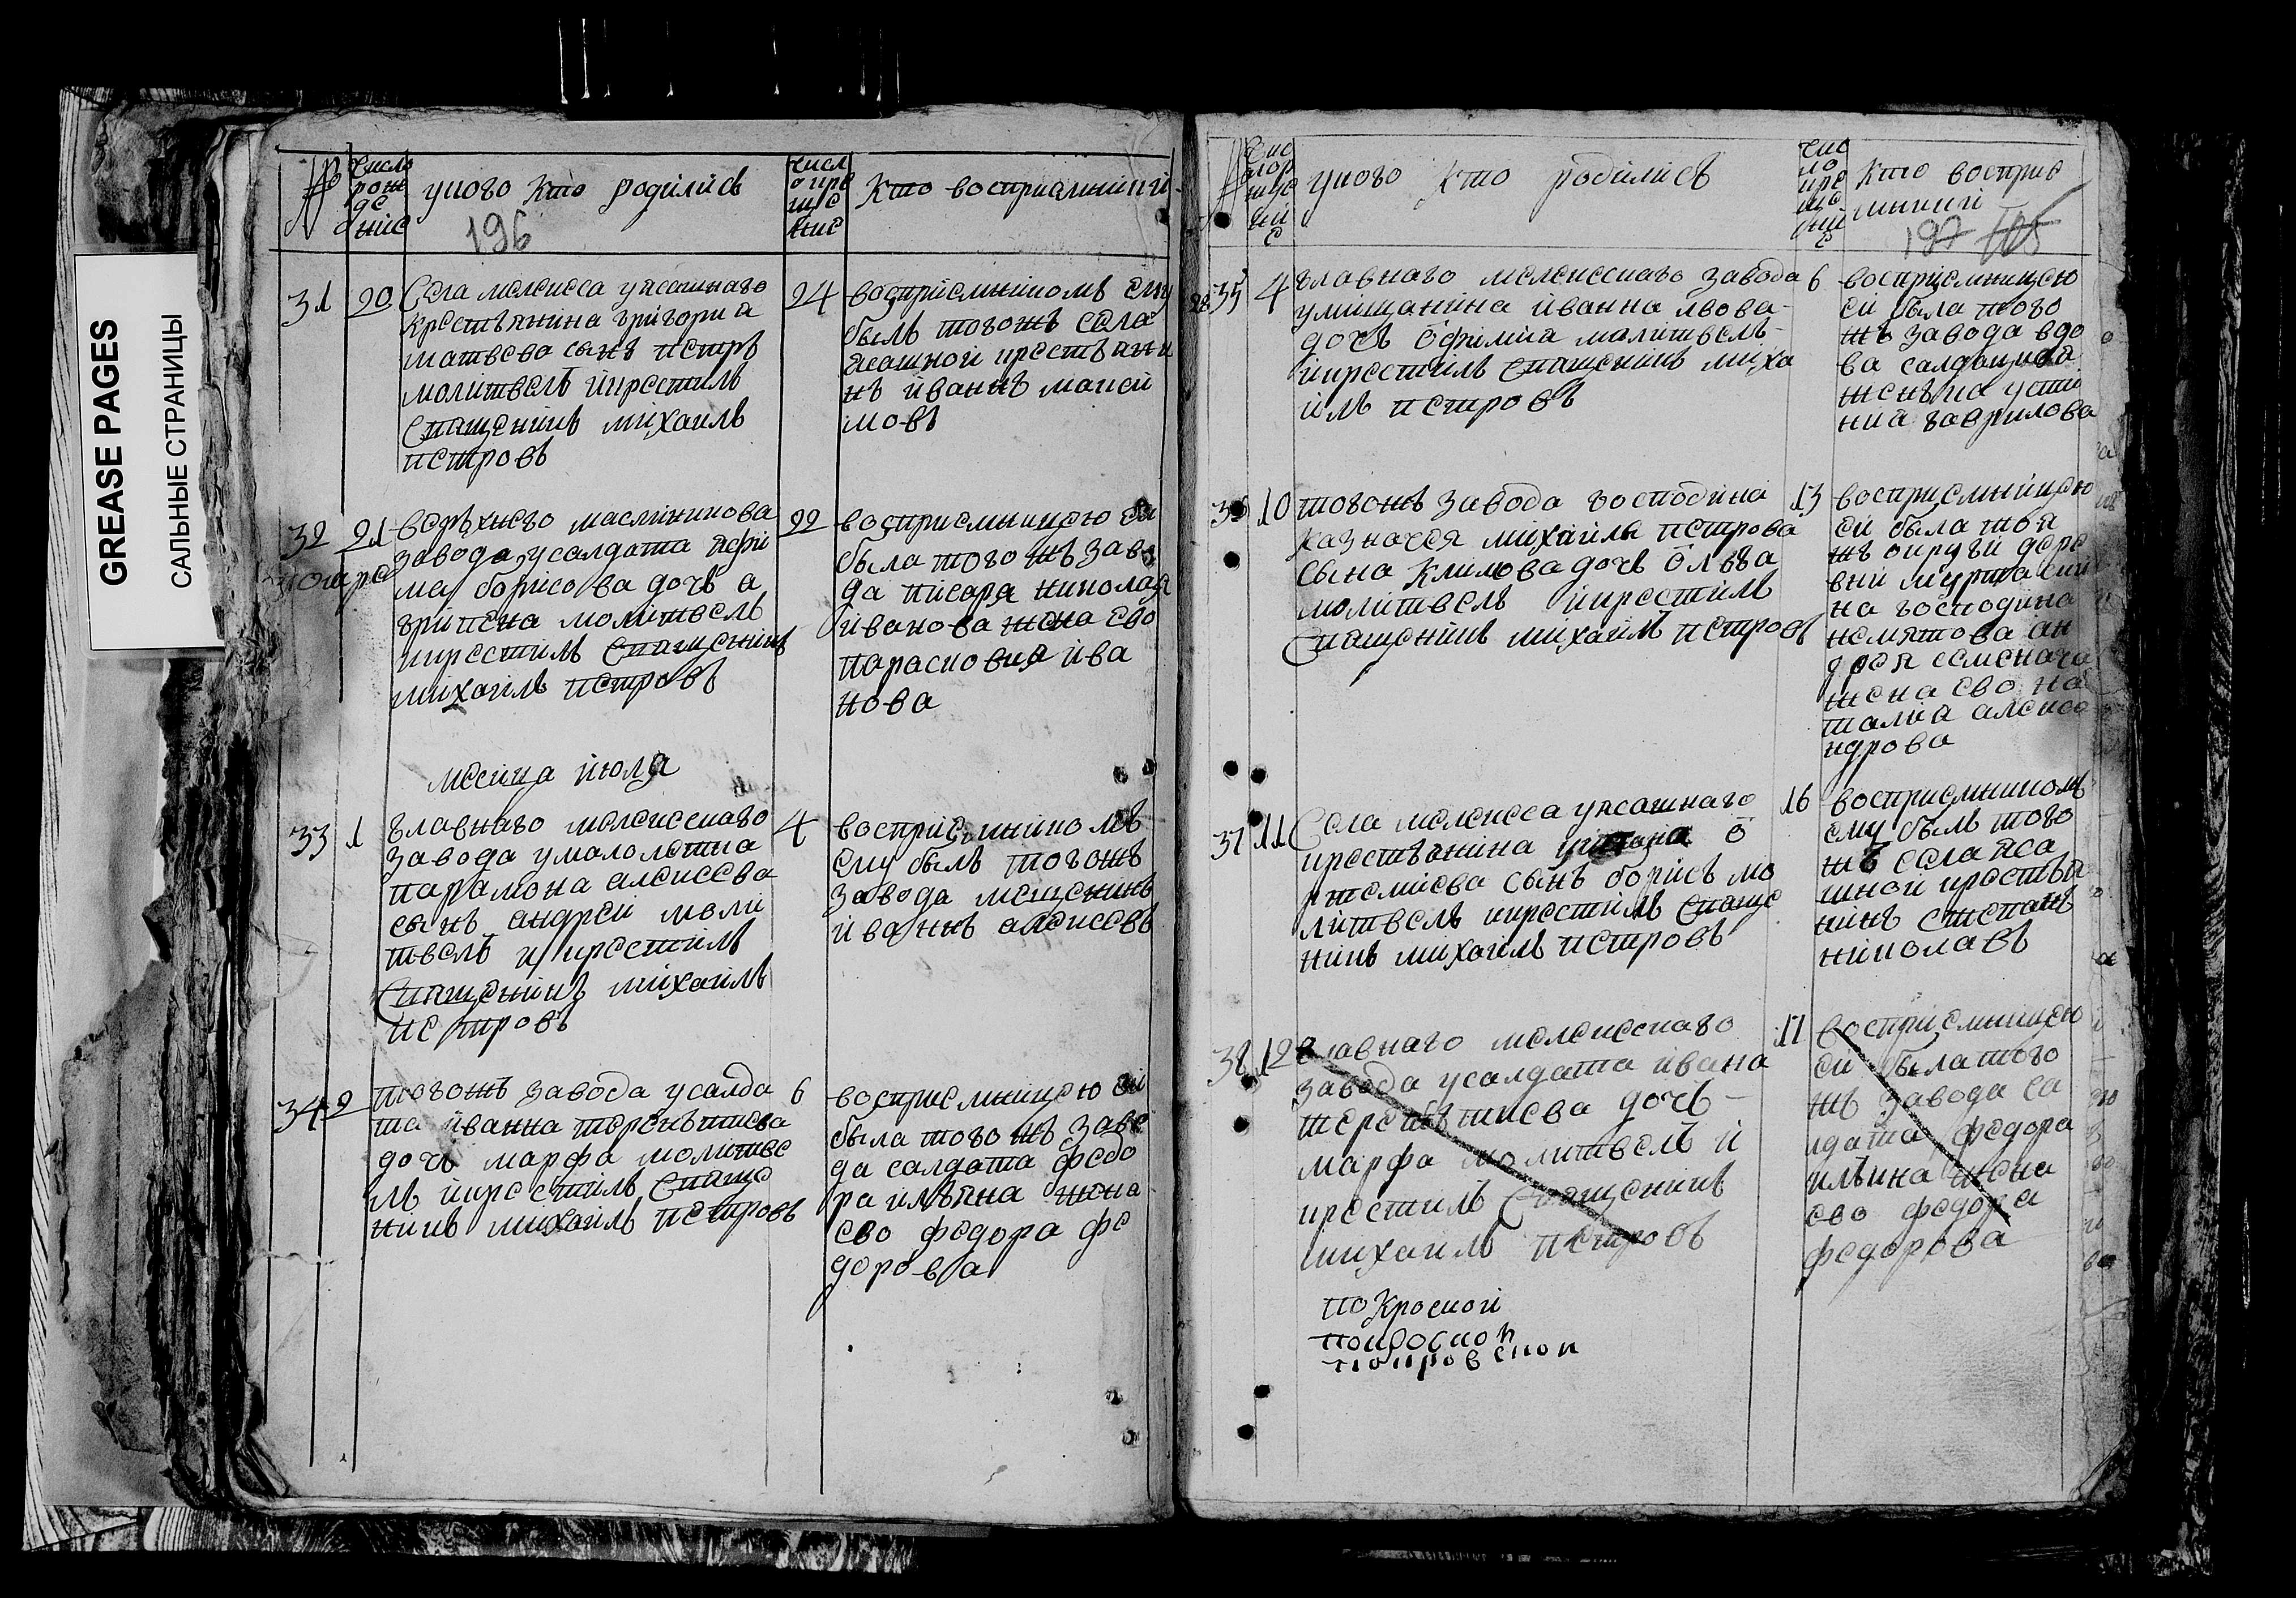 GREASE PAGES
САЛЬНЫЕ СТРАНИЦЫ
№
число
рож
де
ние
укого кто родились
196
число
о кре
ще
ние
кто восприемники
31
20
Села мелекеса уясашнаго
крестьянина григорий
матвева сынъ петръ
молитвелъ икрестилъ
Священикъ михаилъ
петровъ
24
восприемникомъ ему
былъ тогожъ села
ясашной крестьяни
нъ иваннъ макси
мовъ
32
21
верхнего маслиникова
завода усалдата ефи
ма борисова дочь а
грипена молитвелъ
икрестилъ Священикъ
михаилъ петровъ
22
восприемницею ей
была того жъ заво
да писаря николая
иванова жена ево
парасковия ива
нова
месица июля
33
1
главнаго мелекескаго
завода умалолетка
парамона алексева
сынъ андрей моли
твелъ и крестилъ
Священикъ михаилъ
петровъ
4
восприемникомъ
ему былъ тогожъ
завода мещенинъ
иваннъ алексевъ
34
2
тогожъ завода усалда
та иванна терентиева
дочь марфа молитве
лъ икрестилъ Свяще
никъ михаилъ петровъ
6
восприемницею ей
была того жъ заво
да салдата федо
ра ильина жена
ево федора фе
дорова
укого кто родилисъ
кто воспри
емники
197
105
35
4
главнаго мелекескаго завода
умищанина иванна львова
дочь офимиа молитвелъ
икрестилъ Священикъ миха
илъ петровъ
6
восприемницею
ей была того
жъ завода вдо
ва салдацкая
женъка усти
ниа гаврилова
36
10
тогожъ завода господина
казначея михаилъ петрова
сына климова дочь олга
молитвелъ икрестилъ
Священикъ михаилъ петровъ
13
восприемницею
ей была той
жъ округи дере
вни
на господина
андрея семенача
жена ево на
талиа алекса
ндрова
37
11
Села мелекеса уясашнаго
крестьянина о
ртемиева сынъ борисъ мо
литвелъ икрестилъ Свяще
никъ михаилъ петровъ
16
восприемникомъ
ему былъ того
жъ села яса
шной крестья
нинъ степанъ
николавъ
38
12
главнаго мелекескаго
завода усалдата ивана
терентиева дочь
марфа молитвелъ и
крестилъ Священикъ
михаилъ петровъ
17
восприемницею
ей была того
жъ завода са
лдата федора
ильина жена
ево федора
федорова
по Краской
покровской